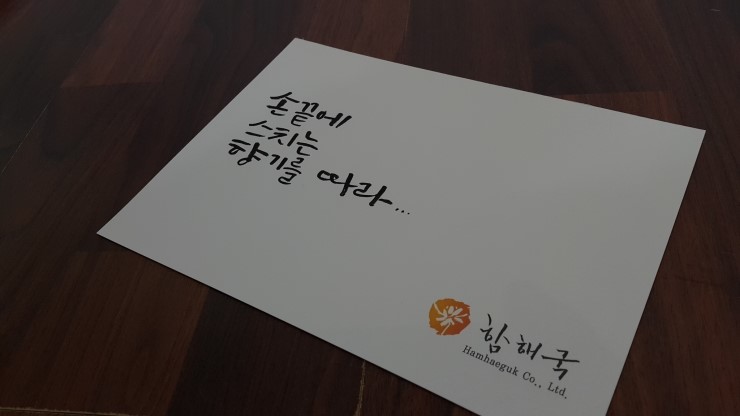 손끝에
스치는
향기를 따라...
함해국
Hamhaeguk Co., Ltd.